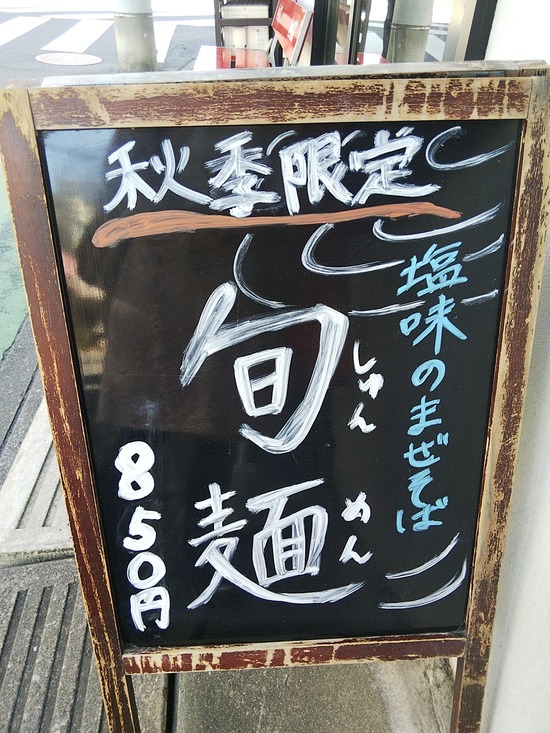 秋季限定
塩味のまぜそば
旬麺
しゅん
めん
850円